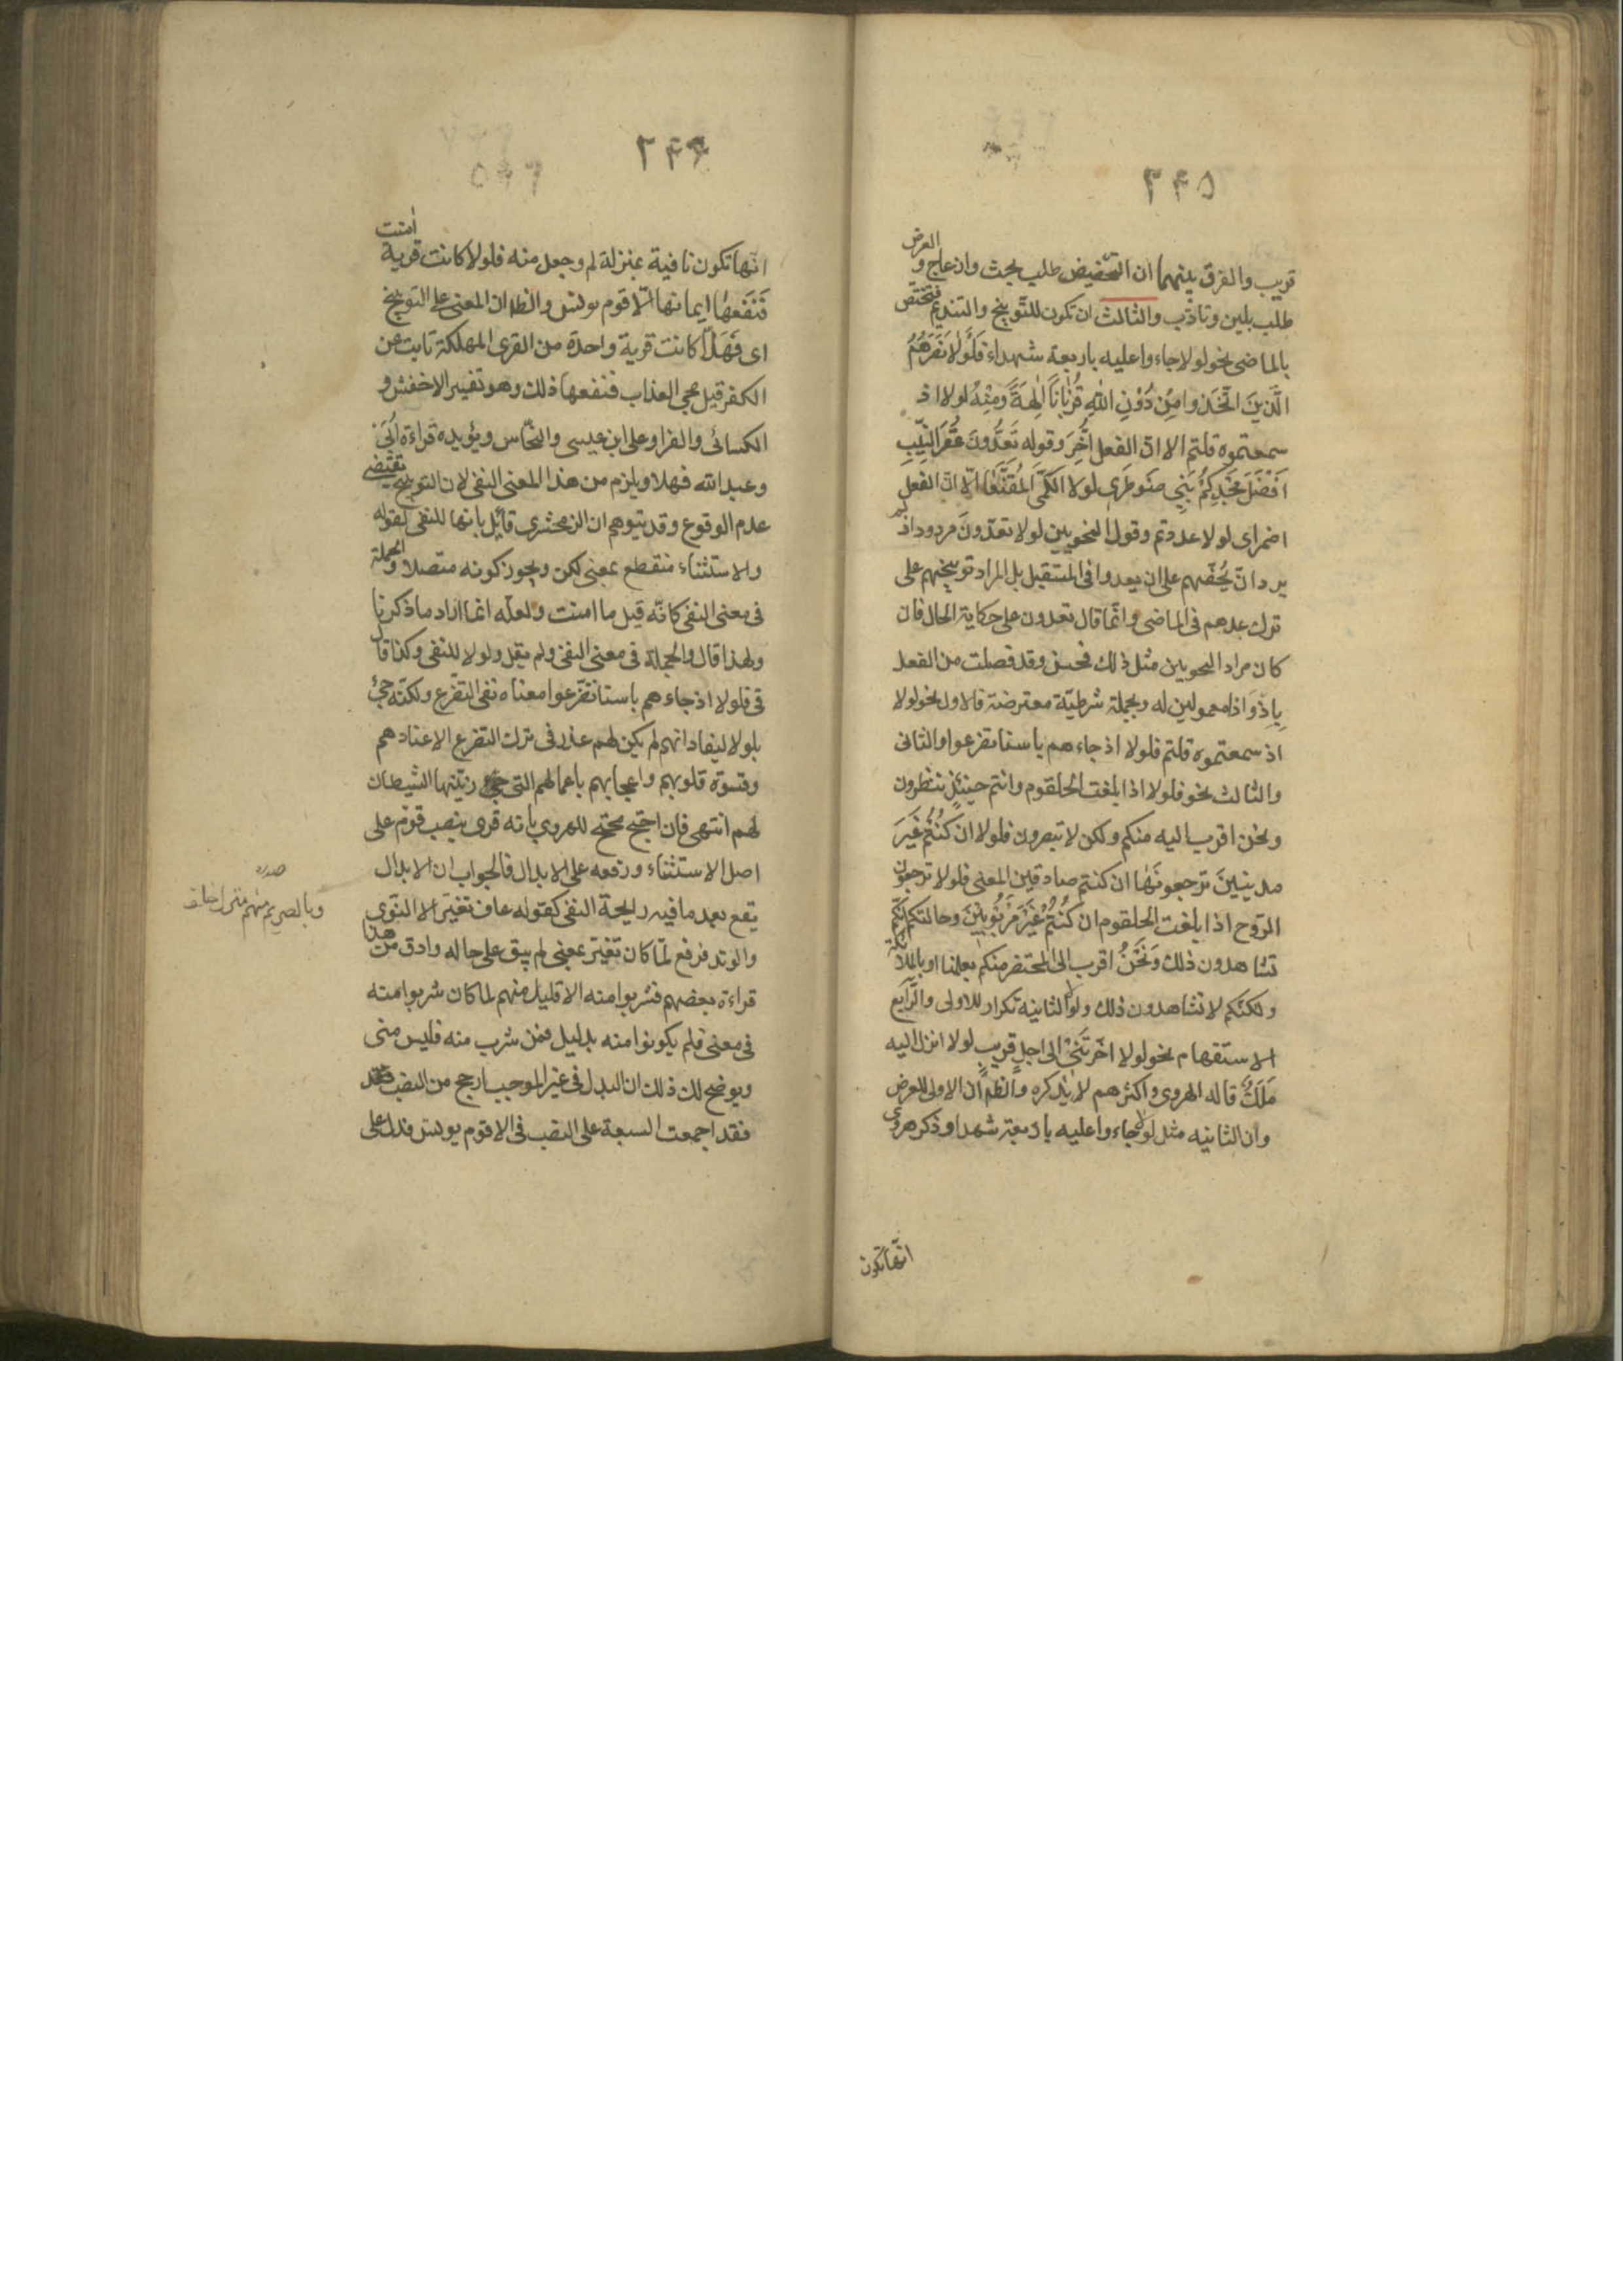 ٣٤٥
قريب والفرق بينهما ان التحضيض طلب بحث وازعاج والعرض
طلب بلين وتأدب والثالث ان تكون للتوبيخ والتنديم فتختص
بالماضى نحو لولا جاءوا عليه باربعة شهداء فَلَوْلا نَصَرَهُمُ
الَّذِينَ اتَّخَذوا مِنْ دُوْنِ اللهِ قُرْبَاناً آلِهَةً وَمِنْهُ لولا اذ
سمعتموه قلتم الا انّ الفعل اُخِّرَ وقوله تَعُدُّونَ عَقْرَ النِّيبِ
اَفْضَلَ مَجْدِكُمْ بَنِي ضَوْطَرَى لولا الكَمِّىَّ المُقَنَّعَا الّا انّ الفعل
اضمر اى لولا عددتم وقول النحويين لولا تعدّونَ مردود اذ لم
يرد انّ يُحُضّهم على ان يعدوا فى المستقبل بل المراد توبيخهم على
ترك عدهم فى الماضى وانّما قال تعدون على حكاية الحال فان
كان مراد النحويين مثل ذلك فحسن وقد فصلت من الفعل
بِاِذْ وَاذا معمولين له وبجملة شرطيّة معترضة فالاول نحو لولا
اذ سمعتموه قلتم فلولا اذ جاءهم باسنا تضرعوا والثانى
والثالث نحو فلولا اذا بلغت الحلقوم وانتم حينئذٍ تنظرون
ونحن اقرب اليه منكم ولكن لا تبصرون فلولا ان كُنْتُمْ غَيْرَ
مدينينَ ترجعونَهٰا ان كنتم صادقين المعنى فلولا ترجعون
الرّوح اذا بلغت الحلقوم ان كُنْتُمْ غَيْرَ مَرْبُوبِيْنَ وحالتكم انّكم
تشاهدون ذلك وَنَحْنُ اقرب الى المحتضر منكم بعلمنا او بالملائكة
ولكنّكم لا تشاهدون ذلك ولولا الثانيه تكرار للاولى والرّابع
الاستفهام نحو لولا اخّرتَنِىْ الى اجلٍ قريبٍ لولا انزل اليه
مَلَكٌ قاله الهروى واكثرهم لا يذكره والظاهر انّ الاولى للعرض
وان الثانيه مثل لولا جاءوا عليه باربعة شهدا وذكر هروى
انّها تكون
٣٤٦
انّها تكون نافية بمنزلة لم وجعل منه فلولا كانت قرية امنت
فَنَفَعَهٰا ايمانها الّا قوم يونس والظ ان المعنى على التوبيخ
اى فَهَلّا كانت قرية واحدة من القرى المهلكة تابت عن
الكفر قبل مجى العذاب فنفعها ذلك وهو تفسير الاخفش و
الكسائى والفرا وعلى ابن عيسى والنحّاس ويؤيده قراءة اُبَىّ
وعبد الله فهلا ويلزم من هذا المعنى النفى لان التوبيخ يقتضى
عدم الوقوع وقد يتوهم ان الزمخشرى قائل بانها للنفى لقوله
والاستثناء منقطع بمعنى لكن ويجوز كونه متصلا والجملة
فى معنى النفى كانّه قيل ما امنت ولعلّه انّما اراد ما ذكرنا
ولهذا قال والجملة فى معنى النفى ولم يقل ولولا للنفى وكذا قال
فى فلولا اذ جاءهم باسنا تضرّعوا معناه نفى التضرّع ولكنّه جئ
بلولا ليفاد انهم لم يكن لهم عذر فى ترك التضرع الا عنادهم
وقسوة قلوبهم واعجابهم باعمالهم التى زيّنها الشيطان
لهم انتهى فان احتج محتج للهروى بانه قرى بنصب قوم على
اصل الاستثناء ورفعه على الابدال فالجواب ان الابدال
يقع بعد ما فيه رايحة النفى كقوله عاف تغيّر الا النوى
والوتد فرفع لمّا كان تغيّر بمعنى لم يبق على حاله وادق من هذا
قراءة بعضهم فشربوا منه الا قليل منهم لما كان شربوا منه
فى معنى فلم يكونوا منه بدليل فمن شرب منه فليس منى
ويوضح لك ذلك ان البدل فى غير الموجب ارجح من النصب
فقد اجمعت السبعة على النصب فى الا قوم يونس فدل على
صدره
وبالصريم منهم منزل خلق